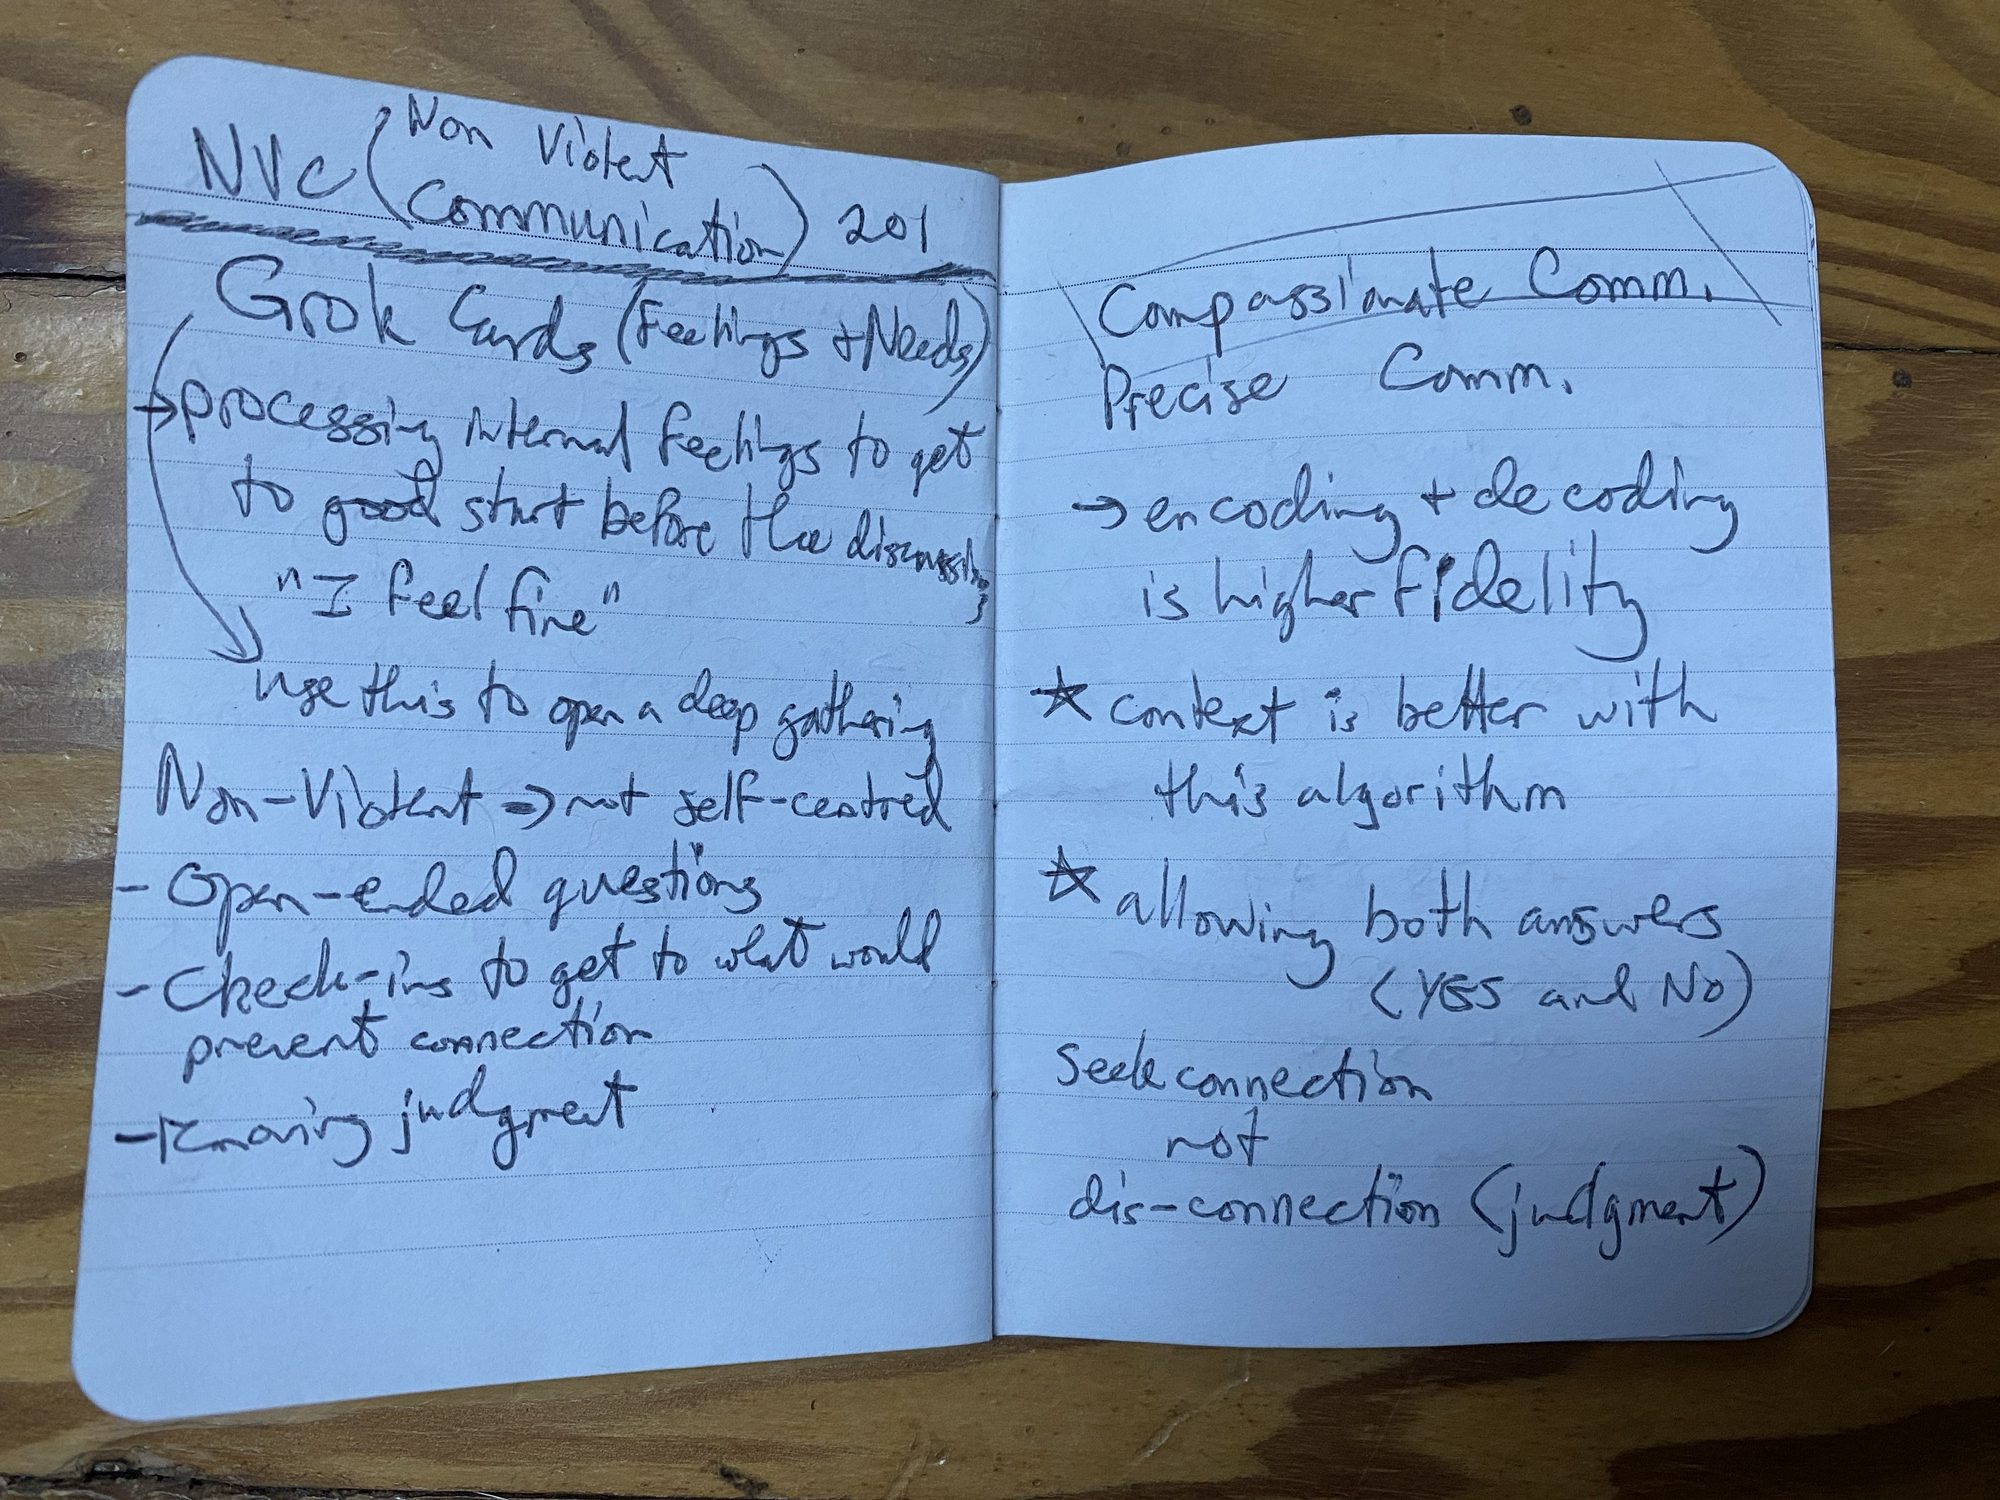 NVC (Non Violent
Communication) 201
Grok Cards (Feelings + Needs)
→ processing internal feelings to get
to good start before the discussing
"I feel fine"
use this to open a deep gathering
Non-Violent → not self-centred
- Open-ended questions
- Check-ins to get to what would
prevent connection
- removing judgment
Compassionate Comm.
Precise Comm.
→ encoding + decoding
is higher fidelity
☆ context is better with
this algorithm
☆ allowing both answers
(YES and NO)
Seek connection
not
dis-connection (judgment)